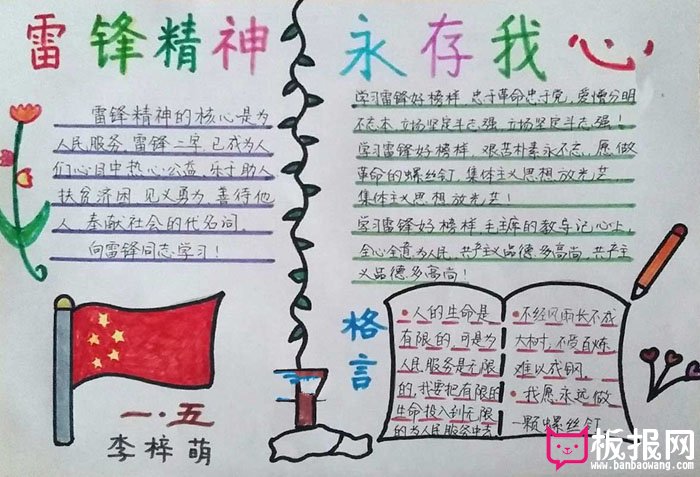 雷锋精神 永存我心
雷锋精神的核心是为
人民服务，雷锋二字，已成为人
们心目中热心公益、乐于助人、
扶贫济困、见义勇为、善待他
人、奉献社会的代名词。
向雷锋同志学习！
学习雷锋好榜样，忠于革命忠于党，爱憎分明
不忘本，立场坚定斗志强，立场坚定斗志强！
学习雷锋好榜样，艰苦朴素永不忘，愿做
革命的螺丝钉，集体主义思想放光芒，
集体主义思想放光芒！
学习雷锋好榜样，毛主席的教导记心上，
全心全意为人民，共产主义品德多高尚，共产主
义品德多高尚！
格言
人的生命是
有限的，可是为
人民服务是无限
的，我要把有限的
生命投入到无限
的为人民服务中去
不经风雨长不成
大树，不受百炼
难以成钢。
我愿永远做
一颗螺丝钉
一.五
李梓萌
板报网
www.banbaowang.com